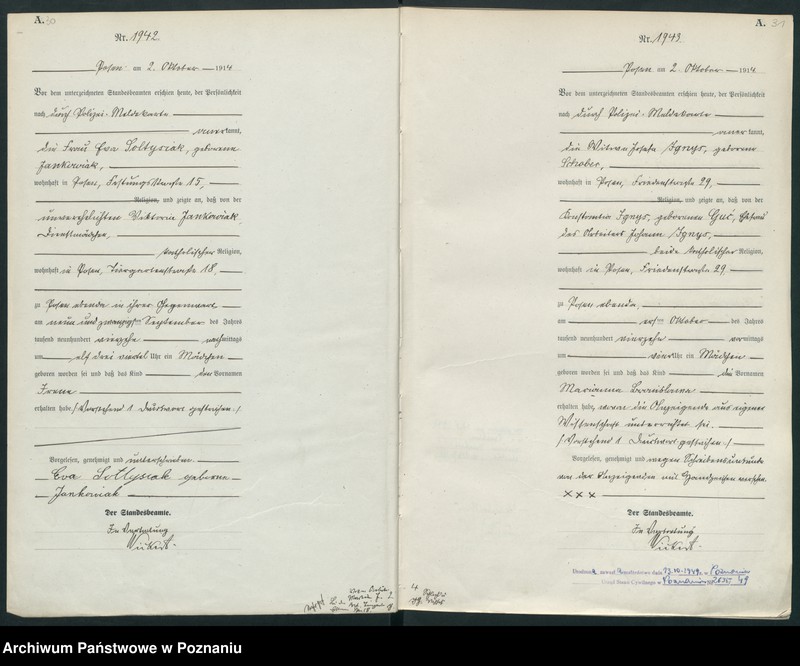 A. 30
Nr. 1942.
Posen am 2. Oktober 1914
Vor dem unterzeichneten Standesbeamten erschien heute, der Persönlichkeit
nach durch Polizei-Meldekarte
anerkannt,
die Frau Eva Soltysiak, geborene
Jankowiak,
wohnhaft in Posen, Festungsstraße 15,
Religion, und zeigte an, daß von der
unverehelichten Viktoria Jankowiak,
Dienstmädchen,
katholischer Religion,
wohnhaft in Posen, Tiergartenstraße 18
zu Posen ebenda in ihrer Gegenwart
am neun und zwanzigsten September des Jahres
tausend neunhundert vierzehn nachmittags
um elf drei viertel Uhr ein Mädchen
geboren worden sei und daß das Kind den Vornamen
Irene
erhalten habe / Vorstehend 1 Druckwort gestrichen. /
Vorgelesen, genehmigt und unterschrieben
Eva Soltysiak geborene
Jankowiak
Der Standesbeamte.
In Vertretung
A. 31
Nr. 1943.
Posen am 2. Oktober 1914
Vor dem unterzeichneten Standesbeamten erschien heute, der Persönlichkeit
nach durch Polizei-Meldekarte
anerkannt,
die Witwe Josefa Ignys, geborene
wohnhaft in Posen, Friedenstraße 29,
Religion, und zeigte an, daß von der
Konstantia Ignys, geborenen Guć, Ehefrau
des Arbeiters Johann Ignys,
beide katholischer Religion,
wohnhaft in Posen, Friedenstraße 29
zu Posen ebenda,
am ersten Oktober des Jahres
tausend neunhundert vierzehn vormittags
um vier Uhr ein Mädchen
geboren worden sei und daß das Kind die Vornamen
Marianna
erhalten habe, wovon die Anzeigende aus eigener
Wissenschaft unterrichtet sei.
/ Vorstehend 1 Druckwort gestrichen. /
Vorgelesen, genehmigt und wegen Schreibensunkunde
von der Anzeigenden mit Handzeichen versehen.
× × ×
Der Standesbeamte.
In Vertretung
Archiwum Państwowe w Poznaniu